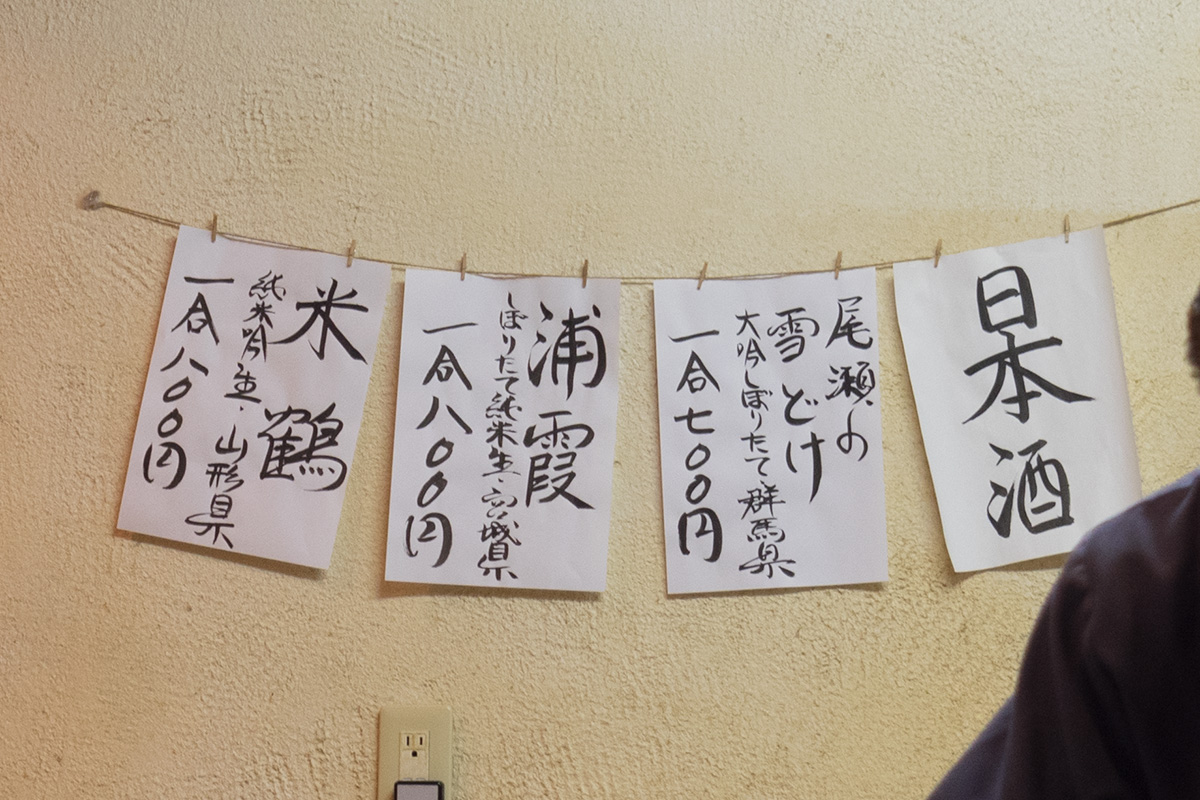 日本酒
尾瀬の
雪どけ
大吟しぼりたて、群馬県
一合七〇〇円
浦霞
しぼりたて純米生・宮城県
一合八〇〇円
米鶴
純米吟生・山形県
一合八〇〇円